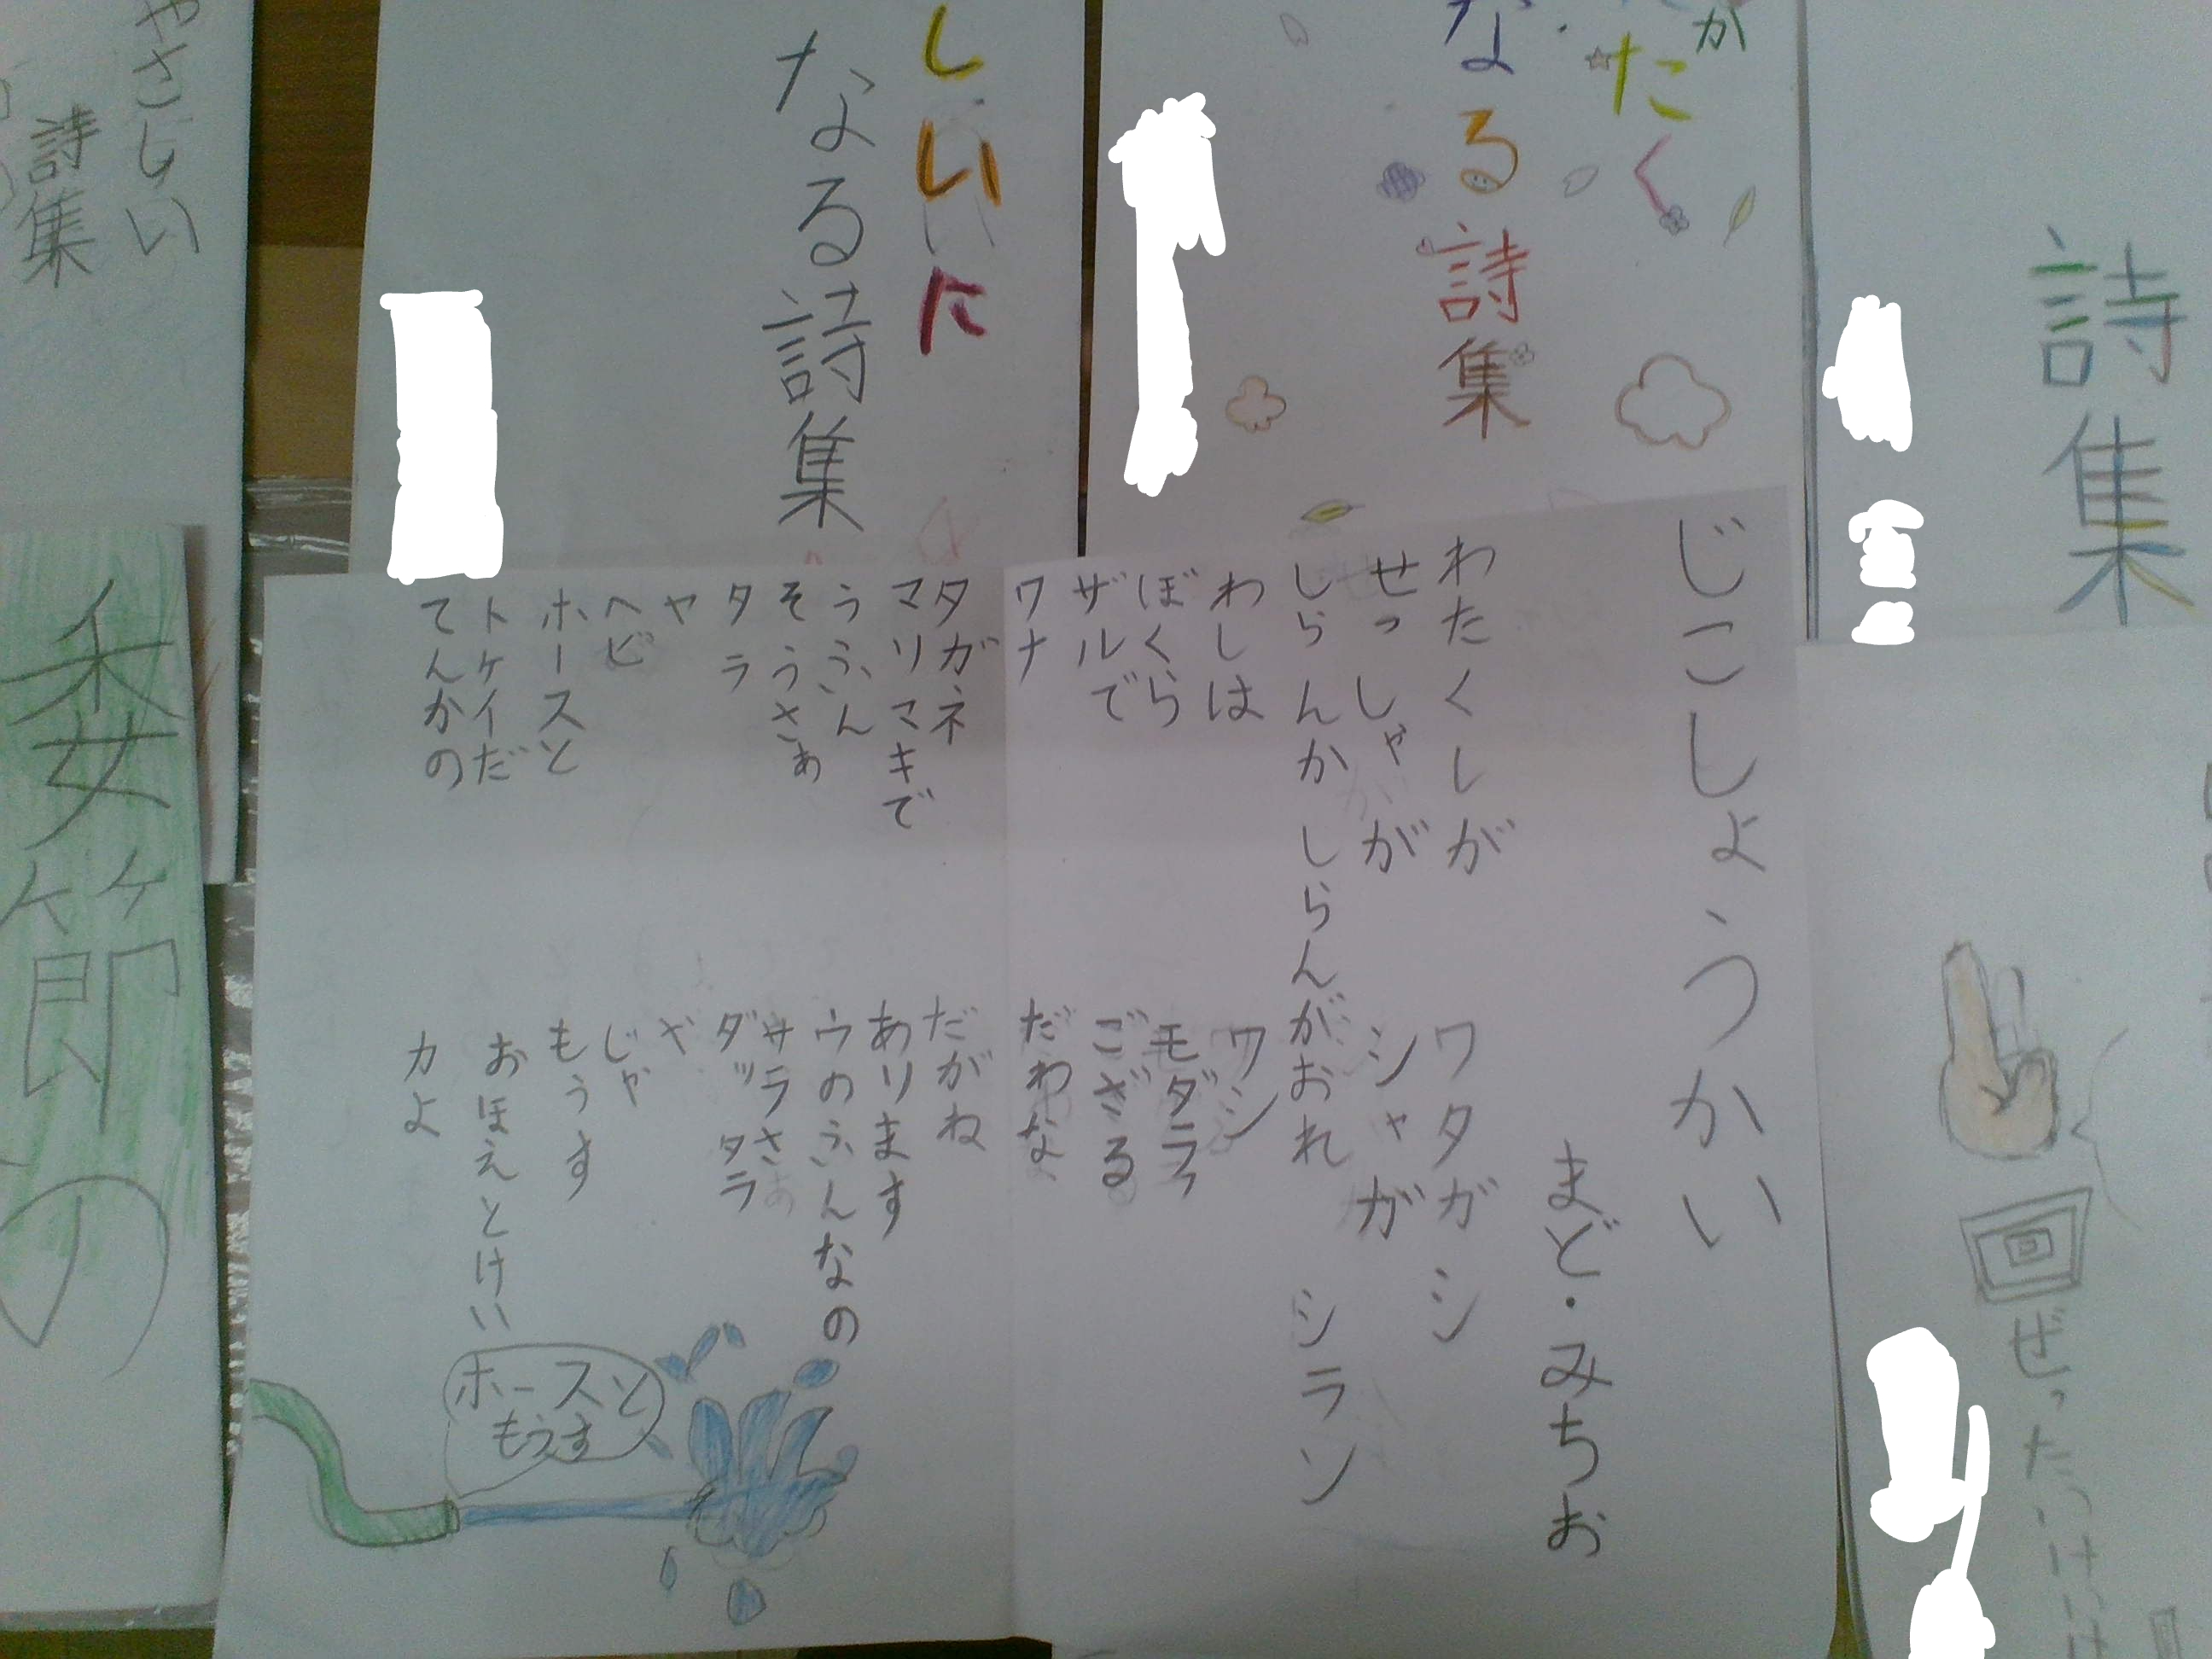 詩集
かたく
なる詩集
しいに
なる詩集
やさしい
詩集
じこしょうかい
まど・みちお
わたくしが ワタガシ シ
せっしゃが シャガ
しらんか しらんがおれ シラン
わしは ワシ
ぼくら モダラ
ザルで ござる
ワナ だわな
タガネ だがね
マリマキで あります
うふん ウのふんなの
そうさぁ サラさぁ
タラ ダッタラ
ヤ や
ヘビ じゃ
ホースと もうす
トケイだ おほえとけい
てんかの カよ
ホースと
もうす
委節の
ぜったい